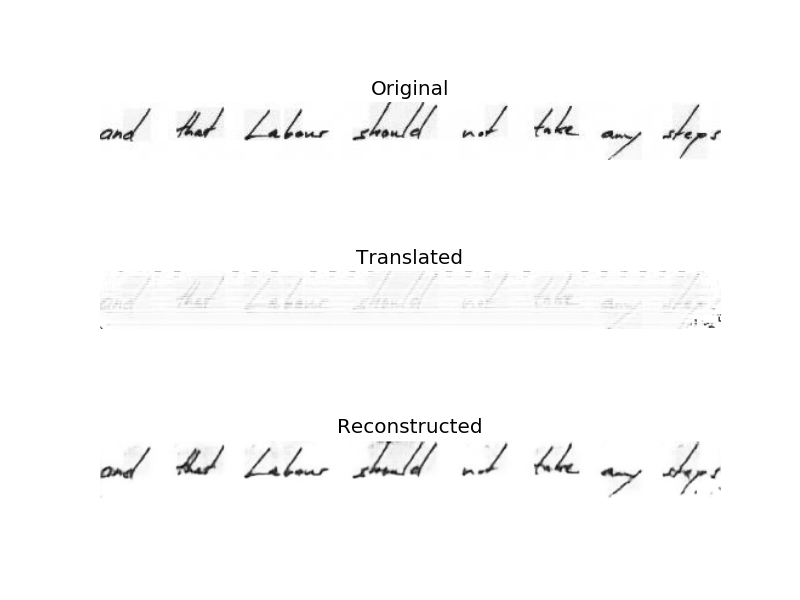 Original
and that Labour should not take any steps
Translated
and that Labour should not take any steps
Reconstructed
and that Labour should not take any steps